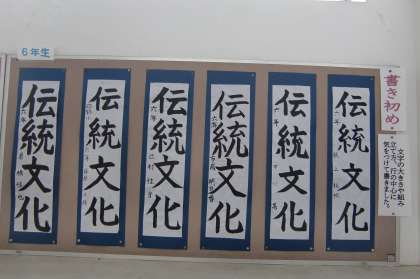 6年生
書き初め
文字の大きさや組み
立て方、行の中心に
気をつけて書きました。
伝統文化
伝統文化
伝統文化
伝統文化
伝統文化
伝統文化